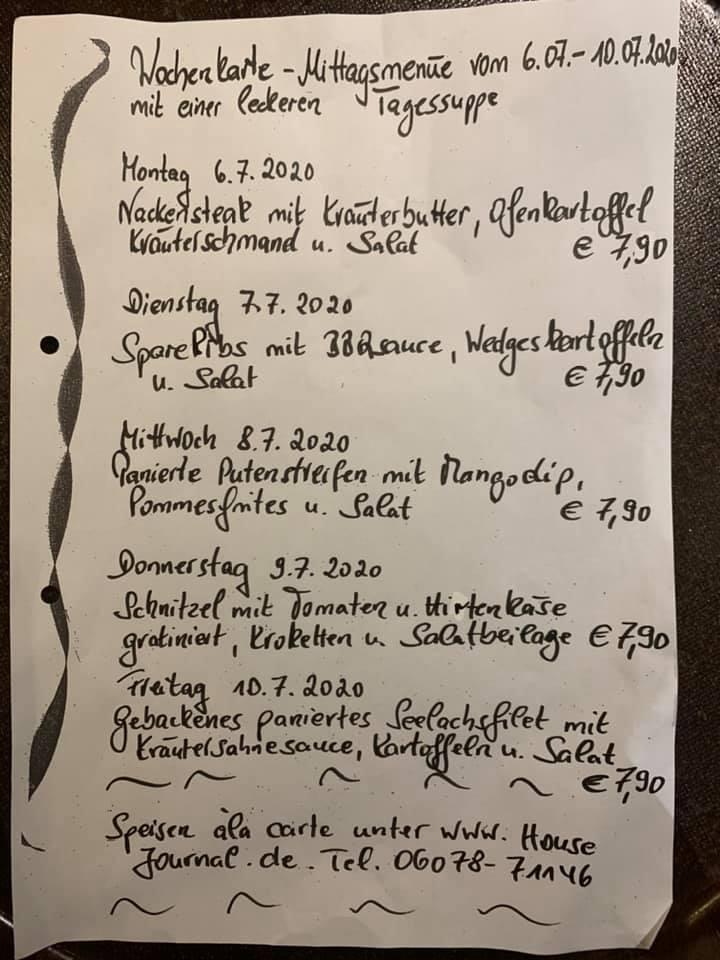 Wochenkarte - Mittagsmenüe vom 6.07. - 10.07.2020
mit einer leckeren Tagessuppe
Montag 6.7.2020
Nackensteak mit Kräuterbutter, Ofenkartoffel
Kräuterschmand u. Salat € 7,90
Dienstag 7.7.2020
Spare Ribs mit BBQsauce, Wedgeskartoffeln
u. Salat € 7,90
Mittwoch 8.7.2020
Panierte Putenstreifen mit Mangodip,
Pommesfrites u. Salat € 7,90
Donnerstag 9.7.2020
Schnitzel mit Tomaten u. Hirtenkäse
gratiniert, Kroketten u. Salatbeilage € 7,90
Freitag 10.7.2020
Gebackenes paniertes Seelachsfilet mit
Kräutersahnesauce, Kartoffeln u. Salat
€ 7,90
Speisen àla carte unter www. House
Journal.de. Tel. 06078-71146